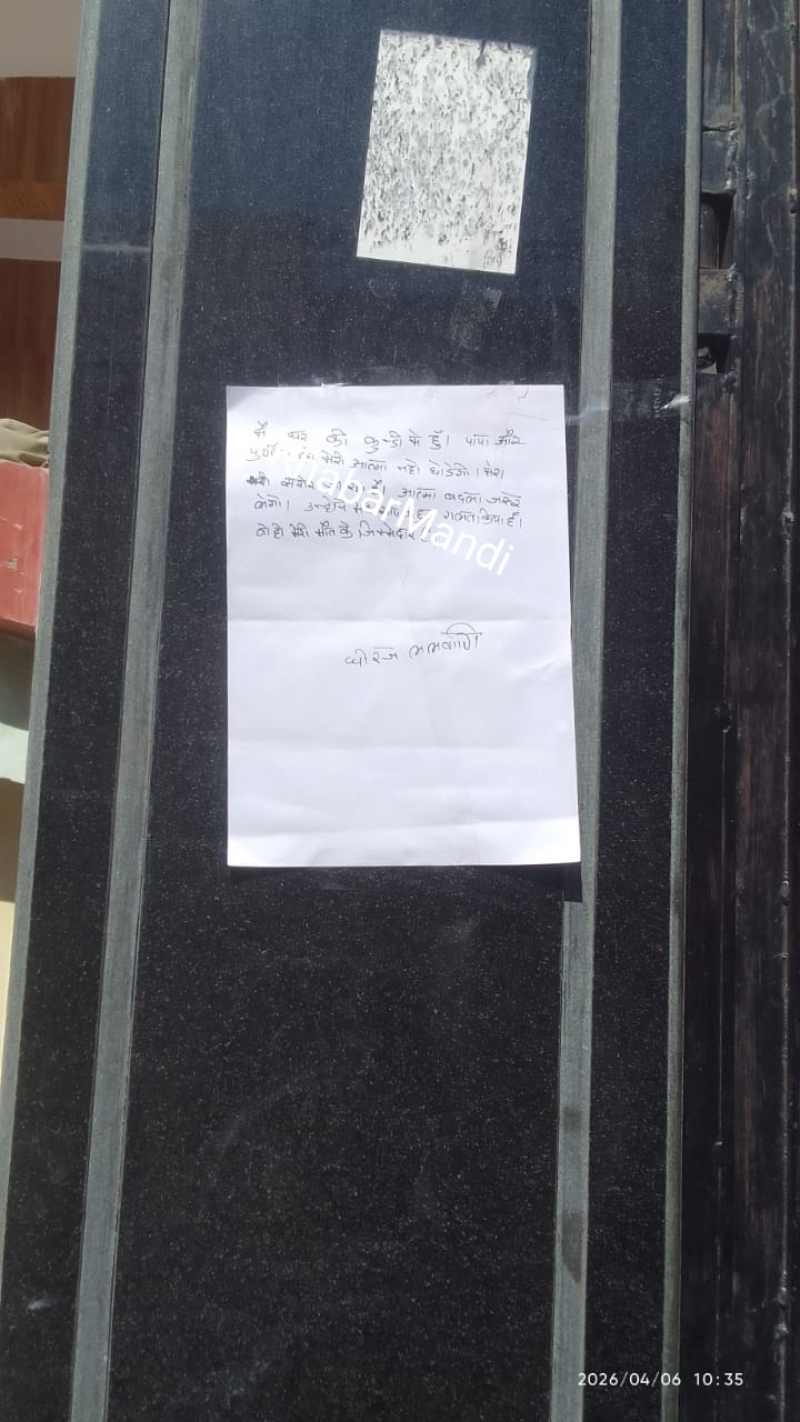 मैं घर की कुन्डी में हूँ। पापा और
मेरी आत्मा नहीं छोडेगी। मेरा
शरीर है। आत्मा बदला जरूर
लेगी। उन्होंने गलत किया है।
वो ही मेरी मौत के जिम्मेदार
धीरज
khabarMandi
2026/04/06 10:35